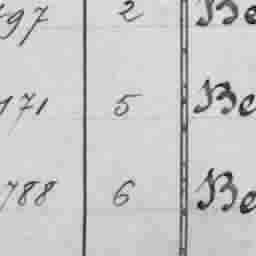 797 2 Be
171 5 Be
788 6 Be